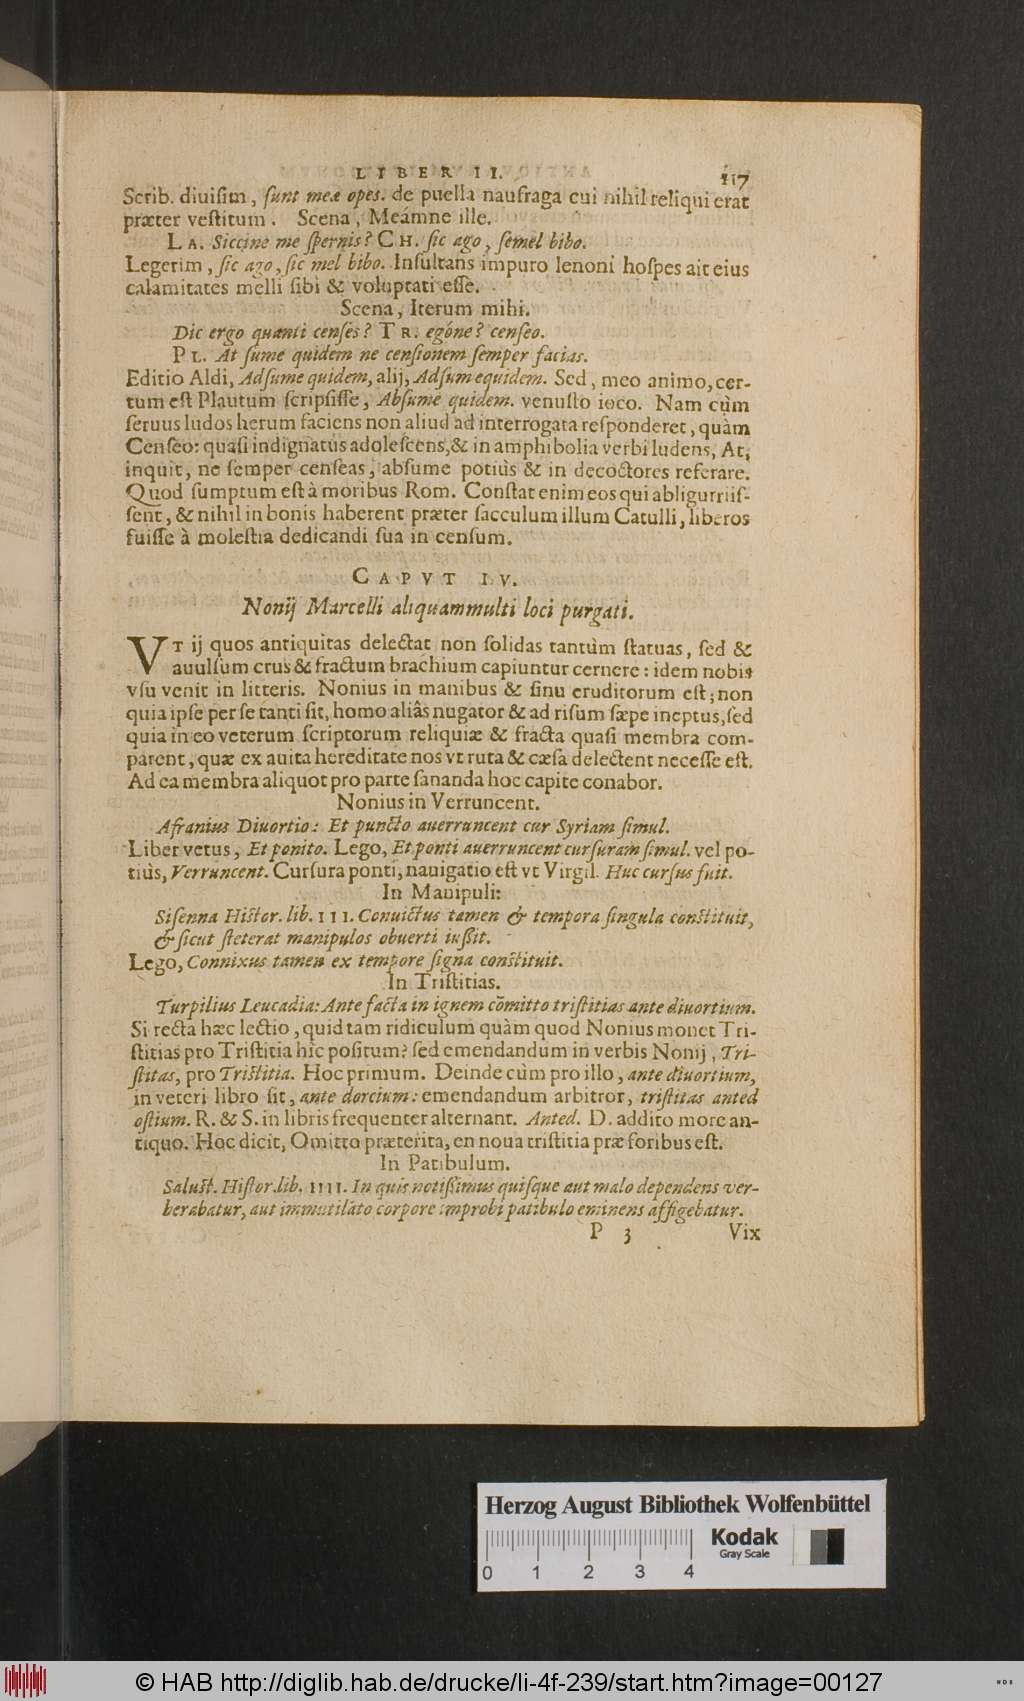 LIBER II. 117
Scrib. diuisim, sunt meæ opes. de puella naufraga cui nihil reliqui erat
præter vestitum. Scena, Meámne ille.
LA. Siccine me spernis? CH. sic ago, semel bibo.
Legerim, sic ago, sic mel bibo. Insultans impuro lenoni hospes ait eius
calamitates melli sibi & voluptati esse.
Scena, Iterum mihi.
Dic ergo quanti censes? TR. egóne? censeo.
PL. At sume quidem ne censionem semper facias.
Editio Aldi, Adsume quidem, alij, Adsum equidem. Sed, meo animo, cer-
tum est Plautum scripsisse, Absume quidem. venusto ioco. Nam cùm
seruus ludos herum faciens non aliud ad interrogata responderet, quàm
Censeo: quasi indignatus adolescens, & in amphibolia verbi ludens, At,
inquit, ne semper censeas, absume potiùs & in decoctores referare.
Quod sumptum est à moribus Rom. Constat enim eos qui abligurriis-
sent, & nihil in bonis haberent præter sacculum illum Catulli, liberos
fuisse à molestia dedicandi sua in censum.
CAPVT IV.
Nonij Marcelli aliquammulti loci purgati.
VT ij quos antiquitas delectat non solidas tantùm statuas, sed &
auulsum crus & fractum brachium capiuntur cernere: idem nobis
vsu venit in litteris. Nonius in manibus & sinu eruditorum est; non
quia ipse per se tanti sit, homo aliâs nugator & ad risum sæpe ineptus, sed
quia in eo veterum scriptorum reliquiæ & fracta quasi membra com-
parent, quæ ex auita hereditate nos vt ruta & cæsa delectent necesse est.
Ad ea membra aliquot pro parte sananda hoc capite conabor.
Nonius in Verruncent.
Afranius Diuortio: Et puncto auerruncent cur Syriam simul.
Liber vetus, Et ponito. Lego, Et ponti auerruncent cursuram simul. vel po-
tiùs, Verruncent. Cursura ponti, nauigatio est vt Virgil. Huc cursus fuit.
In Manipuli:
Sisenna Histor. lib. III. Conuictus tamen & tempora singula constituit,
& sicut steterat manipulos obuerti iussit.
Lego, Connixus tamen ex tempore signa constituit.
In Tristitias.
Turpilius Leucadia: Ante facta in ignem cõmitto tristitias ante diuortium.
Si recta hæc lectio, quid tam ridiculum quàm quod Nonius monet Tri-
stitias pro Tristitia hîc positum? sed emendandum in verbis Nonij, Tri-
stitas, pro Tristitia. Hoc primum. Deinde cùm pro illo, ante diuortium,
in veteri libro sit, ante dorcium: emendandum arbitror, tristitas anted
ostium. R. & S. in libris frequenter alternant. Anted. D. addito more an-
tiquo. Hoc dicit, Omitto præterita, en noua tristitia præ foribus est.
In Patibulum.
Salust. Histor. lib. IIII. In quis notissimus quisque aut malo dependens ver-
berabatur, aut immutilato corpore improbi patibulo eminens affigebatur.
P 3 Vix
Herzog August Bibliothek Wolfenbüttel
Kodak
Gray Scale
0 1 2 3 4
© HAB http://diglib.hab.de/drucke/li-4f-239/start.htm?image=00127